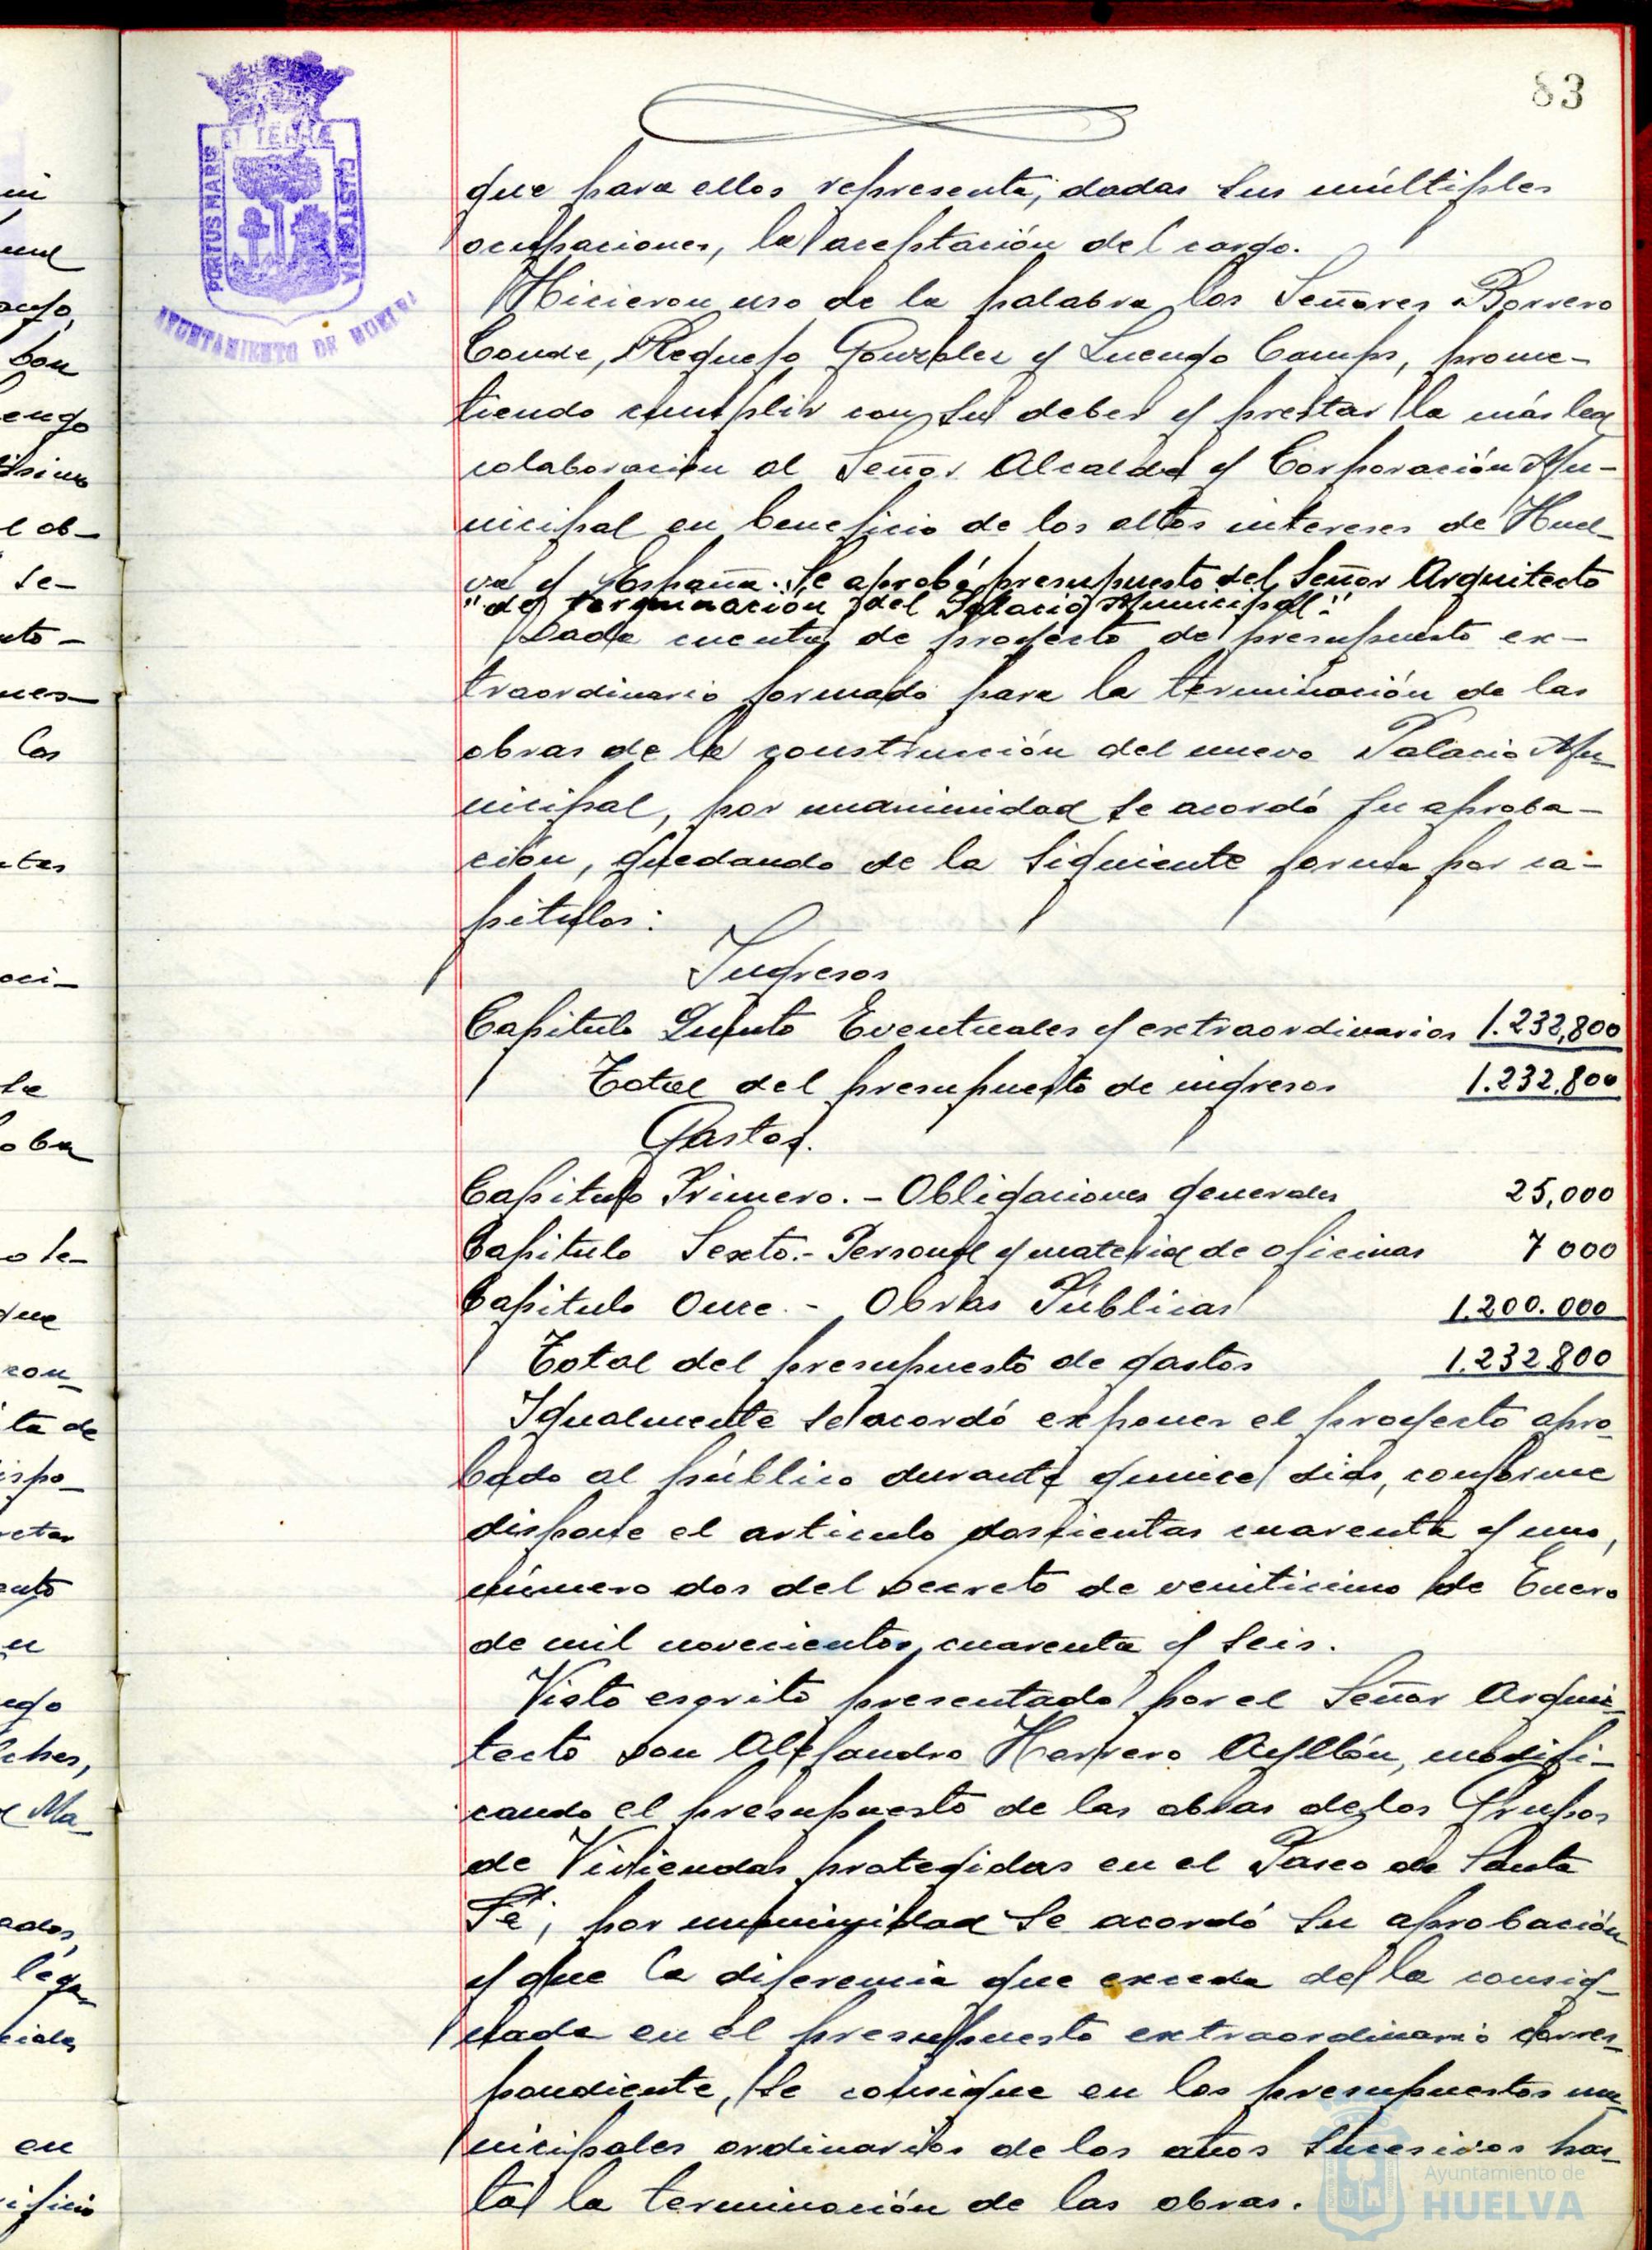 83
ET TERRÆ
PORTUS MARIS
CUSTODIA
AYUNTAMIENTO DE HUELVA
que para ellos representa, dadas sus múltiples
ocupaciones, la aceptación del cargo.
Hicieron uso de la palabra los Señores Borrero
Conde, Requejo González y Luengo Camps, prome-
tiendo cumplir con su deber y prestar la más leal
colaboración al Señor Alcalde y Corporación Mu-
nicipal en beneficio de los altos intereses de Huel-
va y España. Se aprobó presupuesto del Señor Arquitecto
"de terminación del Palacio Municipal."
Dada cuenta de proyecto de presupuesto ex-
traordinario formado para la terminación de las
obras de la construcción del nuevo Palacio Mu-
nicipal, por unanimidad se acordó su aproba-
ción, quedando de la siguiente forma por ca-
pitulos:
Ingresos
Capitulo Quinto Eventuales y extraordinarios 1.232,800
Total del presupuesto de ingresos 1.232.800
Gastos.
Capitulo Primero. - Obligaciones generales 25,000
Capitulo Sexto.- Personal y material de oficinas 7 000
Capitulo Once. - Obras Públicas 1.200.000
Total del presupuesto de gastos 1.232.800
Igualmente se acordó exponer el proyecto apro-
bado al público durante quince dias, conforme
dispone el articulo doscientas cuarenta y uno,
número dos del Decreto de veniticinco de Enero
de mil novecientos cuarenta y seis.
Visto escrito presentado por el Señor Arqui-
tecto Don Alejandro Herrero Ayllón, modifi-
cando el presupuesto de las obras de los Grupos
de Viviendas protegidas en el Paseo de Santa
Fé, por unanimidad se acordó su aprobación
y que la diferencia que exceda de la consig-
nada en el presupuesto extraordinario corres-
pondiente, se consigne en los presupuestos mu-
nicipales ordinarios de los años sucesivos has-
ta la terminación de las obras.
Ayuntamiento de
HUELVA